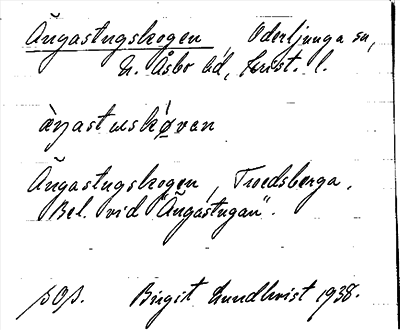 Ängastugskogen, Oderljunga sn,
N. Åsbo hd, Krist. l.
Ängastugskogen, Troedsberga.
Bel. vid "Ängastugan".
Birgit Lundkvist 1938.